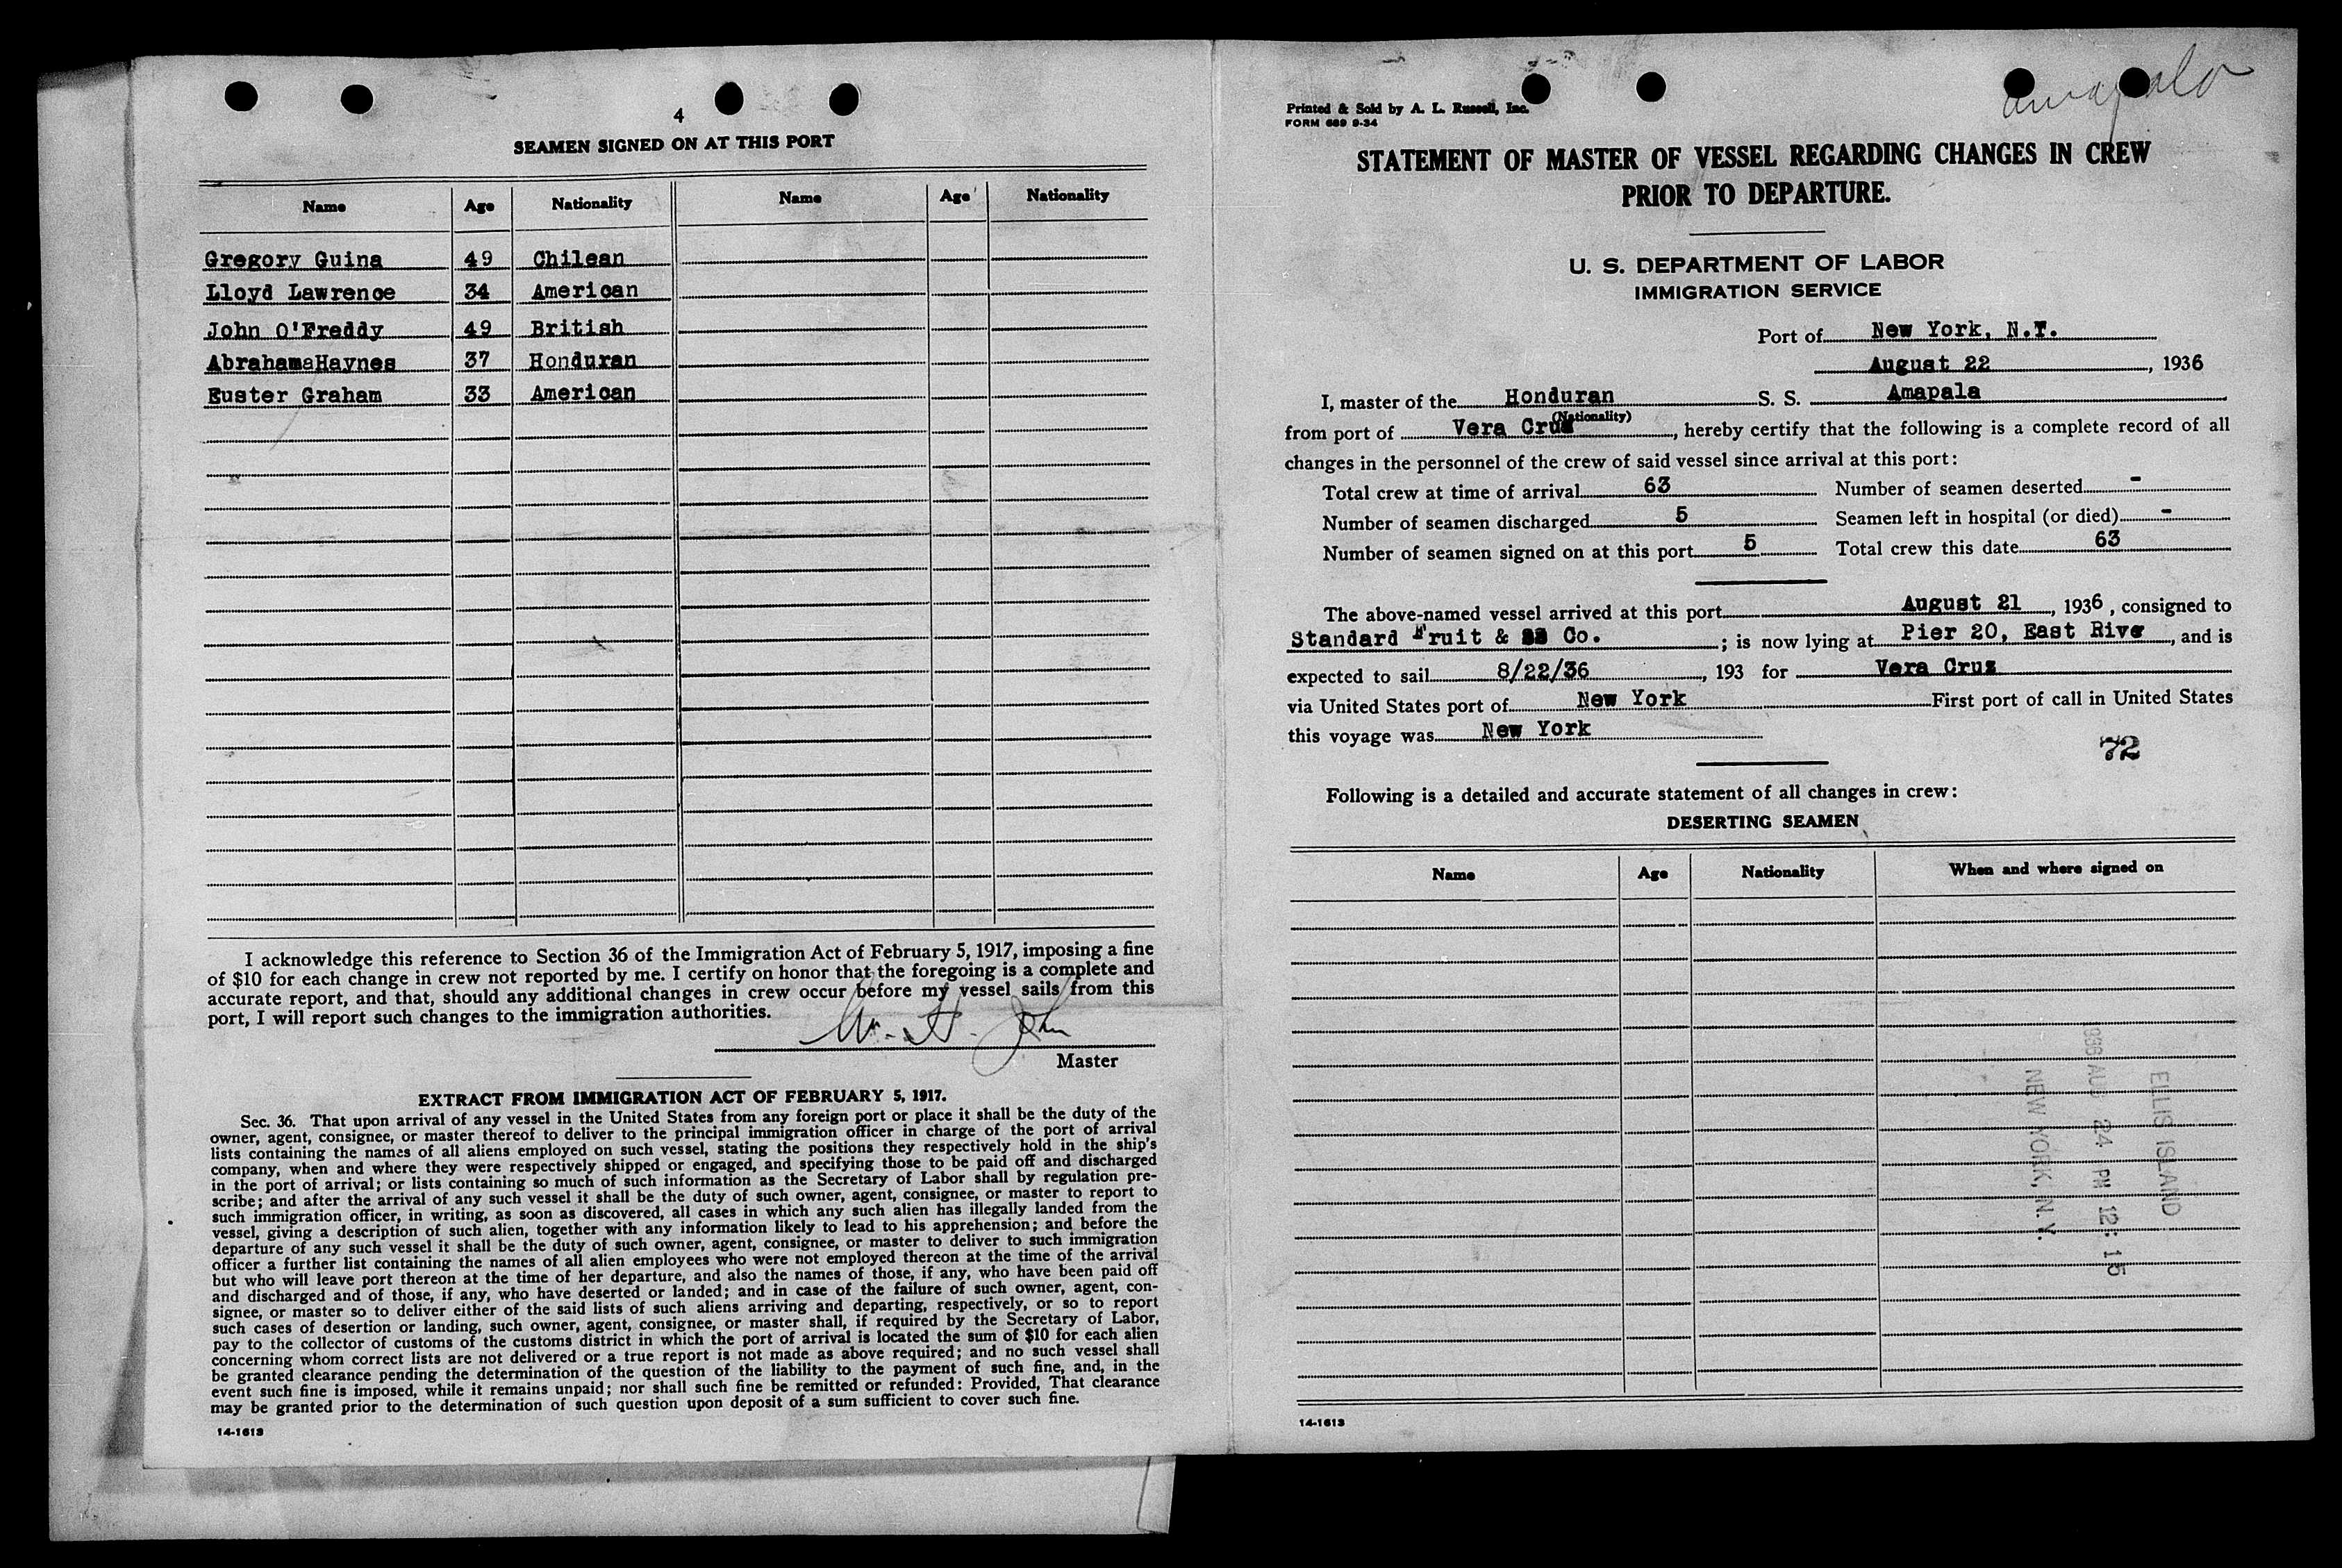 4
SEAMEN SIGNED ON AT THIS PORT
Name Age Nationality Name Age Nationality
Gregory Guina 49 Chilean
Lloyd Lawrence 34 American
John O'Freddy 49 British
AbrahamaHaynes 37 Honduran
Euster Graham 33 American
I acknowledge this reference to Section 36 of the Immigration Act of February 5, 1917, imposing a fine
of $10 for each change in crew not reported by me. I certify on honor that the foregoing is a complete and
accurate report, and that, should any additional changes in crew occur before my vessel sails from this
port, I will report such changes to the immigration authorities.
Wm. H. John
Master
EXTRACT FROM IMMIGRATION ACT OF FEBRUARY 5, 1917.
Sec. 36. That upon arrival of any vessel in the United States from any foreign port or place it shall be the duty of the
owner, agent, consignee, or master thereof to deliver to the principal immigration officer in charge of the port of arrival
lists containing the names of all aliens employed on such vessel, stating the positions they respectively hold in the ship's
company, when and where they were respectively shipped or engaged, and specifying those to be paid off and discharged
in the port of arrival; or lists containing so much of such information as the Secretary of Labor shall by regulation pre-
scribe; and after the arrival of any such vessel it shall be the duty of such owner, agent, consignee, or master to report to
such immigration officer, in writing, as soon as discovered, all cases in which any such alien has illegally landed from the
vessel, giving a description of such alien, together with any information likely to lead to his apprehension; and before the
departure of any such vessel it shall be the duty of such owner, agent, consignee, or master to deliver to such immigration
officer a further list containing the names of all alien employees who were not employed thereon at the time of the arrival
but who will leave port thereon at the time of her departure, and also the names of those, if any, who have been paid off
and discharged and of those, if any, who have deserted or landed; and in case of the failure of such owner, agent, con-
signee, or master so to deliver either of the said lists of such aliens arriving and departing, respectively, or so to report
such cases of desertion or landing, such owner, agent, consignee, or master shall, if required by the Secretary of Labor,
pay to the collector of customs of the customs district in which the port of arrival is located the sum of $10 for each alien
concerning whom correct lists are not delivered or a true report is not made as above required; and no such vessel shall
be granted clearance pending the determination of the question of the liability to the payment of such fine, and, in the
event such fine is imposed, while it remains unpaid; nor shall such fine be remitted or refunded: Provided, That clearance
may be granted prior to the determination of such question upon deposit of a sum sufficient to cover such fine.
14-1613
Amapala
Printed & Sold by A. L. Russell, Inc.
FORM 689 9-34
STATEMENT OF MASTER OF VESSEL REGARDING CHANGES IN CREW
PRIOR TO DEPARTURE.
U. S. DEPARTMENT OF LABOR
IMMIGRATION SERVICE
Port of New York, N.Y.
August 22, 1936
I, master of the Honduran S. S. Amapala
(Nationality)
from port of Vera Cruz, hereby certify that the following is a complete record of all
changes in the personnel of the crew of said vessel since arrival at this port:
Total crew at time of arrival 63 Number of seamen deserted -
Number of seamen discharged 5 Seamen left in hospital (or died) -
Number of seamen signed on at this port 5 Total crew this date 63
The above-named vessel arrived at this port August 21, 1936, consigned to
Standard Fruit & SS Co. ; is now lying at Pier 20, East Rive, and is
expected to sail 8/22/36, 193 for Vera Cruz
via United States port of New York First port of call in United States
this voyage was New York
72
Following is a detailed and accurate statement of all changes in crew:
DESERTING SEAMEN
Name Age Nationality When and where signed on
ELLIS ISLAND
1936 AUG 24 PM 12:15
NEW YORK, N.Y.
14-1613